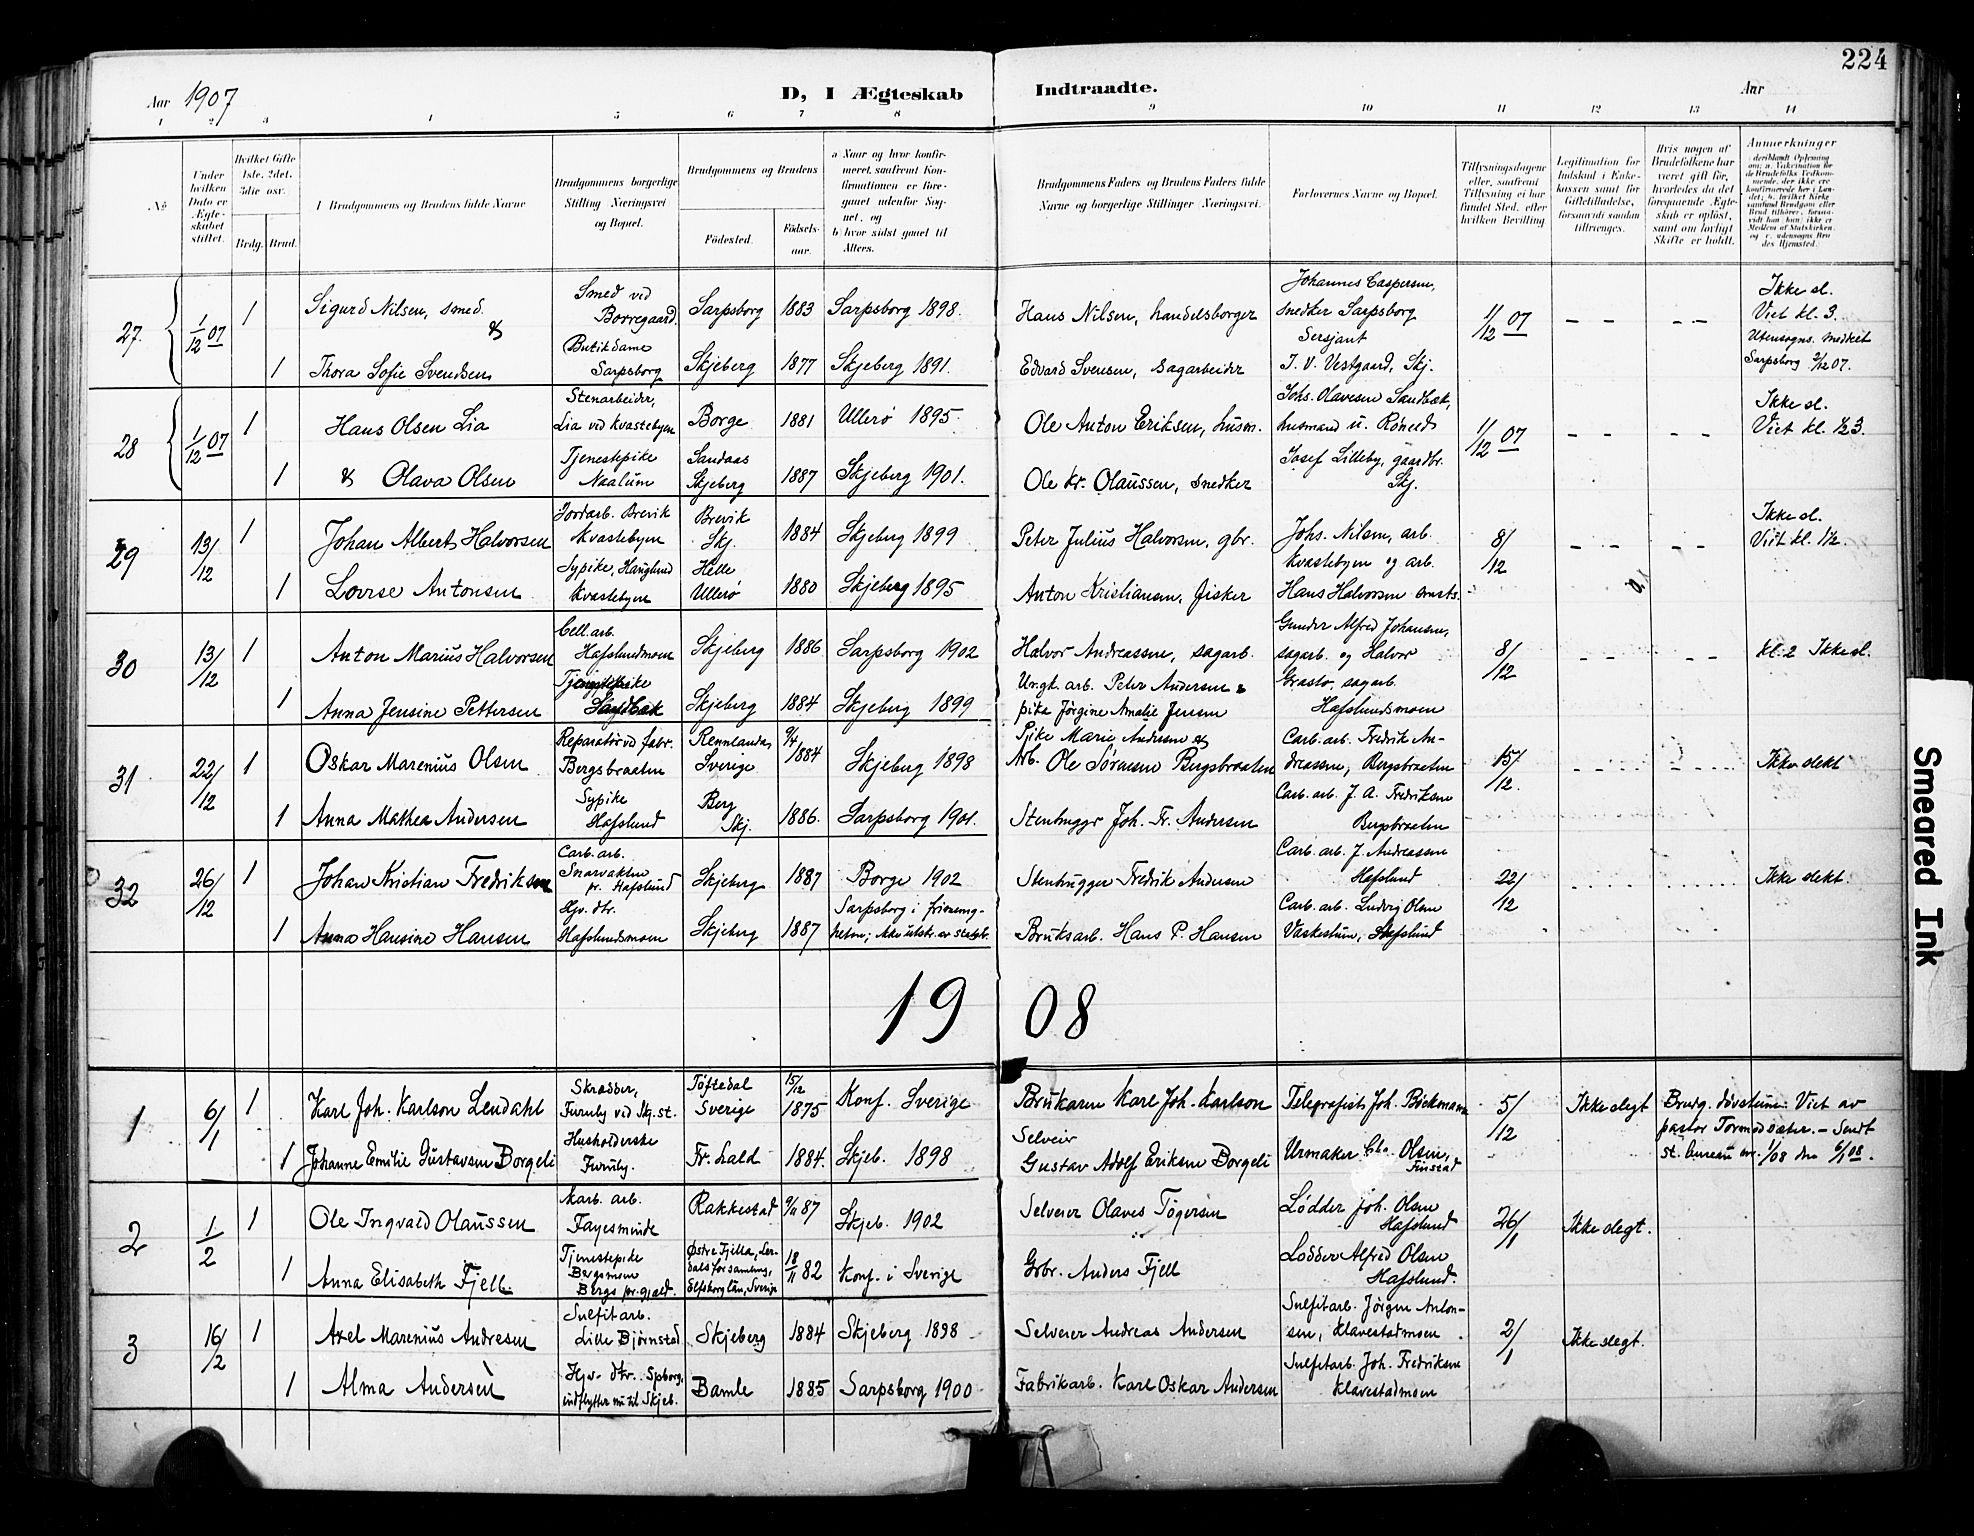 224
Aar 1907
D, I Ægteskab Indtraadte.
Aar
1 2 3 4 5 6 7 8 9 10 11 12 13 14
No
Under hvilken Dato er Ægteskabet stiftet.
Hvilket Gifte 1ste, 2det, 3die osv.
Brdg. Brud.
Brudgommens og Brudens fulde Navne
Brudgommens borgerlige Stilling Næringsvei og Bopæl.
Brudgommens og Brudens
Födested.
Födselsaar.
a Naar og hvor konfirmeret, saafremt Konfirmationen er foregaaet udenfor Sognet, og
b) hvor sidst gaaet til Alters.
Brudgommens Faders og Brudens Faders fulde Navne og borgerlige Stillinger (Næringsvei.
Forlovernes Navne og Bopæl.
Tillysningsdagene eller, saafremt Tillysning ei har fundet Sted, efter hvilken Bevilling
Legitimation for Indskud i Enkekassen samt for Giftetilladelse, forsaavidt saadan tiltrænges.
Hvis nogen af Brudefolkene har været gift før, hvorledes da det foregaaende Ægteskab er opløst, samt om lovligt Skifte er holdt.
Anmerkninger
27. 1/12 07 1 Sigurd Nilsen, smed. & Smed ved Borregaard. Sarpsborg 1883 Sarpsborg 1898. Hans Nilsen, handelsborger Johannes Caspersen, snedker Sarpsborg 1/12 07 Ikke sl. Viet kl. 3.
1 Thora Sofie Svendsen Butikdame Sarpsborg Skjeberg 1877 Skjeberg 1891. Edvard Svensen, sagarbeider Sersjant J. V. Vestgaard, Skj. Utensogns. medket Sarpsborg 2/12 07.
28 1/12 07 1 Hans Olsen Lia Stenarbeider, Lia ved Kvastebyen Borge 1881 Ullerø 1895. Ole Anton Eriksen, husm. Johs. Olavesen Sandbæk, husmand u. 1/12 07 Ikke sl. Viet kl. 1/2 3.
1 & Olava Olsen Tjenestepike Naalum Sandaas Skjeberg 1887 Skjeberg 1901. Ole Kr. Olaussen, snedker Josef Lilleby, gaardbr. Skj.
29 13/12 1 Johan Albert Halvorsen Jordarb. Brevik Kvastebyen Brevik Skj. 1884 Skjeberg 1899 Peter Julius Halvorsen, gbr. Johs. Nilsen, arb. Kvastebyen og arb. 8/12 Ikke sl. Viet kl. 1/2.
1 Lovise Antonsen Sypike, Hauglund Kvastebyen Helle Ullerø 1880 Skjeberg 1895 Anton Kristiansen, fisker Hans Halvorsen
30 13/12 1 Anton Marius Halvorsen Cell. arb. Hafslundmoen Skjeberg 1886 Sarpsborg 1902 Halvor Andreassen, sagarb. Gunder Alfred Johansen, sagarb. og Halvor 8/12 kl. 2 Ikke sl.
1 Anna Jensine Pettersen Tjenestepike Sandbæk Skjeberg 1884 Skjeberg 1899 Ungk. arb. Peter Andersen & pike Jørgine Amalie Jensen Grasto, sagarb. Hafslundsmoen
31 22/12 1 Oskar Marenius Olsen Reparatør vd fabr. Bergsbraaten Rennlanda, Sverige 9/4 1884 Skjeberg 1898 Pike Marie Andersen og Arb. Ole Sørensen Bergsbraaten Carb. arb. Fredrik Andreassen, Bergsbraaten 15/12. Ikke slekt
1 Anna Mathea Andersen Sypike Hafslund Berg Skj. 1886. Sarpsborg 1901. Stenhugger Joh. Fr. Andersen Carb. arb. J. A. Fredriksen Bergsbraaten
32 26/12 1 Johan Kristian Fredriksen Carb. arb. Snarvakten pr. Hafslund Skjeberg 1887 Borge 1902 Stenhugger Fredrik Andersen Carb. arb. J. Andreassen Hafslund 22/12 Ikke slekt.
1 Anna Hansine Hansen Hjv. dtr. Hafslundsmoen Skjeberg 1887 Sarpsborg i frimenigheten; ikke utskr. av statsk. Bruksarb. Hans P. Hansen Carb. arb. Ludvig Olsen Vaskestuen, Hafslund
1908
1 6/1 1 Karl Joh. Karlson Lendahl Skrædder, Furuby ved Skj. st. Töftedal Sverige 15/12 1875 Konf. Sverige Brukaren Karl Joh. Karlson Telegrafist Joh. Böckmann 5/12 Ikke slegt Brudg. døvstum. Viet av pastor Tormodsæter. - Sendt st. bureau nr. 1/08 den 6/1 08.
1 Johanne Emilie Gustavsen Borgeli Husholderske Furuby. Fr.hald 1884. Skjeb. 1898 Selveier Gustav Adolf Eriksen Borgeli Urmaker Chr. Olsen, Finstad
2 1/2 1 Ole Ingvald Olaussen Karb. arb. Fayesminde Rakkestad 9/11 87 Skjeb. 1902 Selveier Olaves Tögersen Lödder Joh. Olsen Hafslund 26/1 Ikke slegt.
1 Anna Elisabeth Fjell. Tjenestepike Bergsmoen Bergs pr.gjæld. Østre Fjella, Lerdals forsamling, Elfsborg län, Sverige 18/11 82 Konf. i Sverige Grbr. Anders Fjell Lodder Alfred Olsen Hafslund.
3 16/2 1 Axel Marenius Andresen Sulfitarb. Lille Bjørnstad Skjeberg 1884 Skjeberg 1898 Selveier Andreas Andersen Sulfitarb. Jörgen Antonsen, Klavestadmoen 2/1 Ikke slegt.
1 Alma Andersen Hjv. dtr. Spborg, indflytter nu til Skjeb. Bamle 1885 Sarpsborg 1900 Fabrikarb. Karl Oskar Andersen Sulfitarb. Joh. Fredriksen Klavestadmoen
Smeared Ink